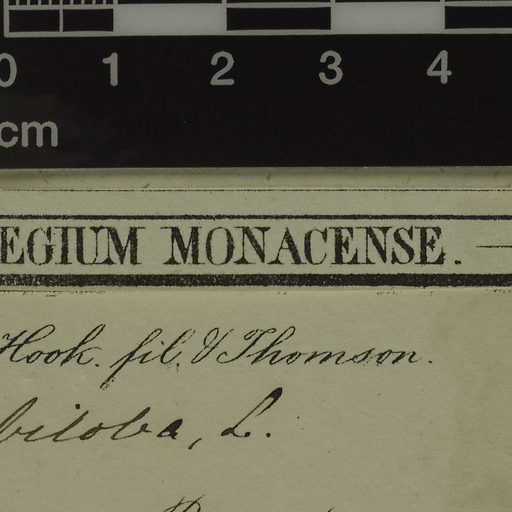 0 1 2 3 4
cm
EGIUM MONACENSE.
Hook. fil. & Thomson.
biloba, L.